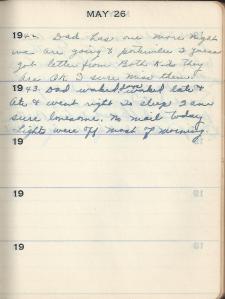 MAY 26
1942. Dad has one more night
we are going & I guess
got letter from Both Kids they
are OK I sure miss them.
1943. Dad worked late &
Ate & went right to sleep I am
sure lonesome. No mail today
Lights were off most of morning.
19
19
19